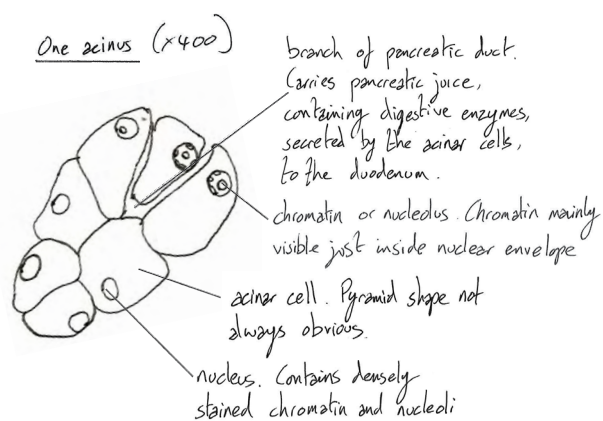 One acinus (x400)
branch of pancreatic duct.
Carries pancreatic juice,
containing digestive enzymes,
secreted by the acinar cells,
to the duodenum.
chromatin or nucleolus. Chromatin mainly
visible just inside nuclear envelope
acinar cell. Pyramid shape not
always obvious.
nucleus. Contains densely
stained chromatin and nucleoli